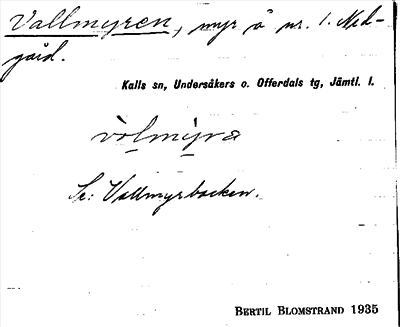 Vallmyren, myr å nr. 1. Ned-
gård.
Kalls sn, Undersåkers o. Offerdals tg, Jämtl. l.
vòlmỳra
Se: Vallmyrbacken.
BERTIL BLOMSTRAND 1935